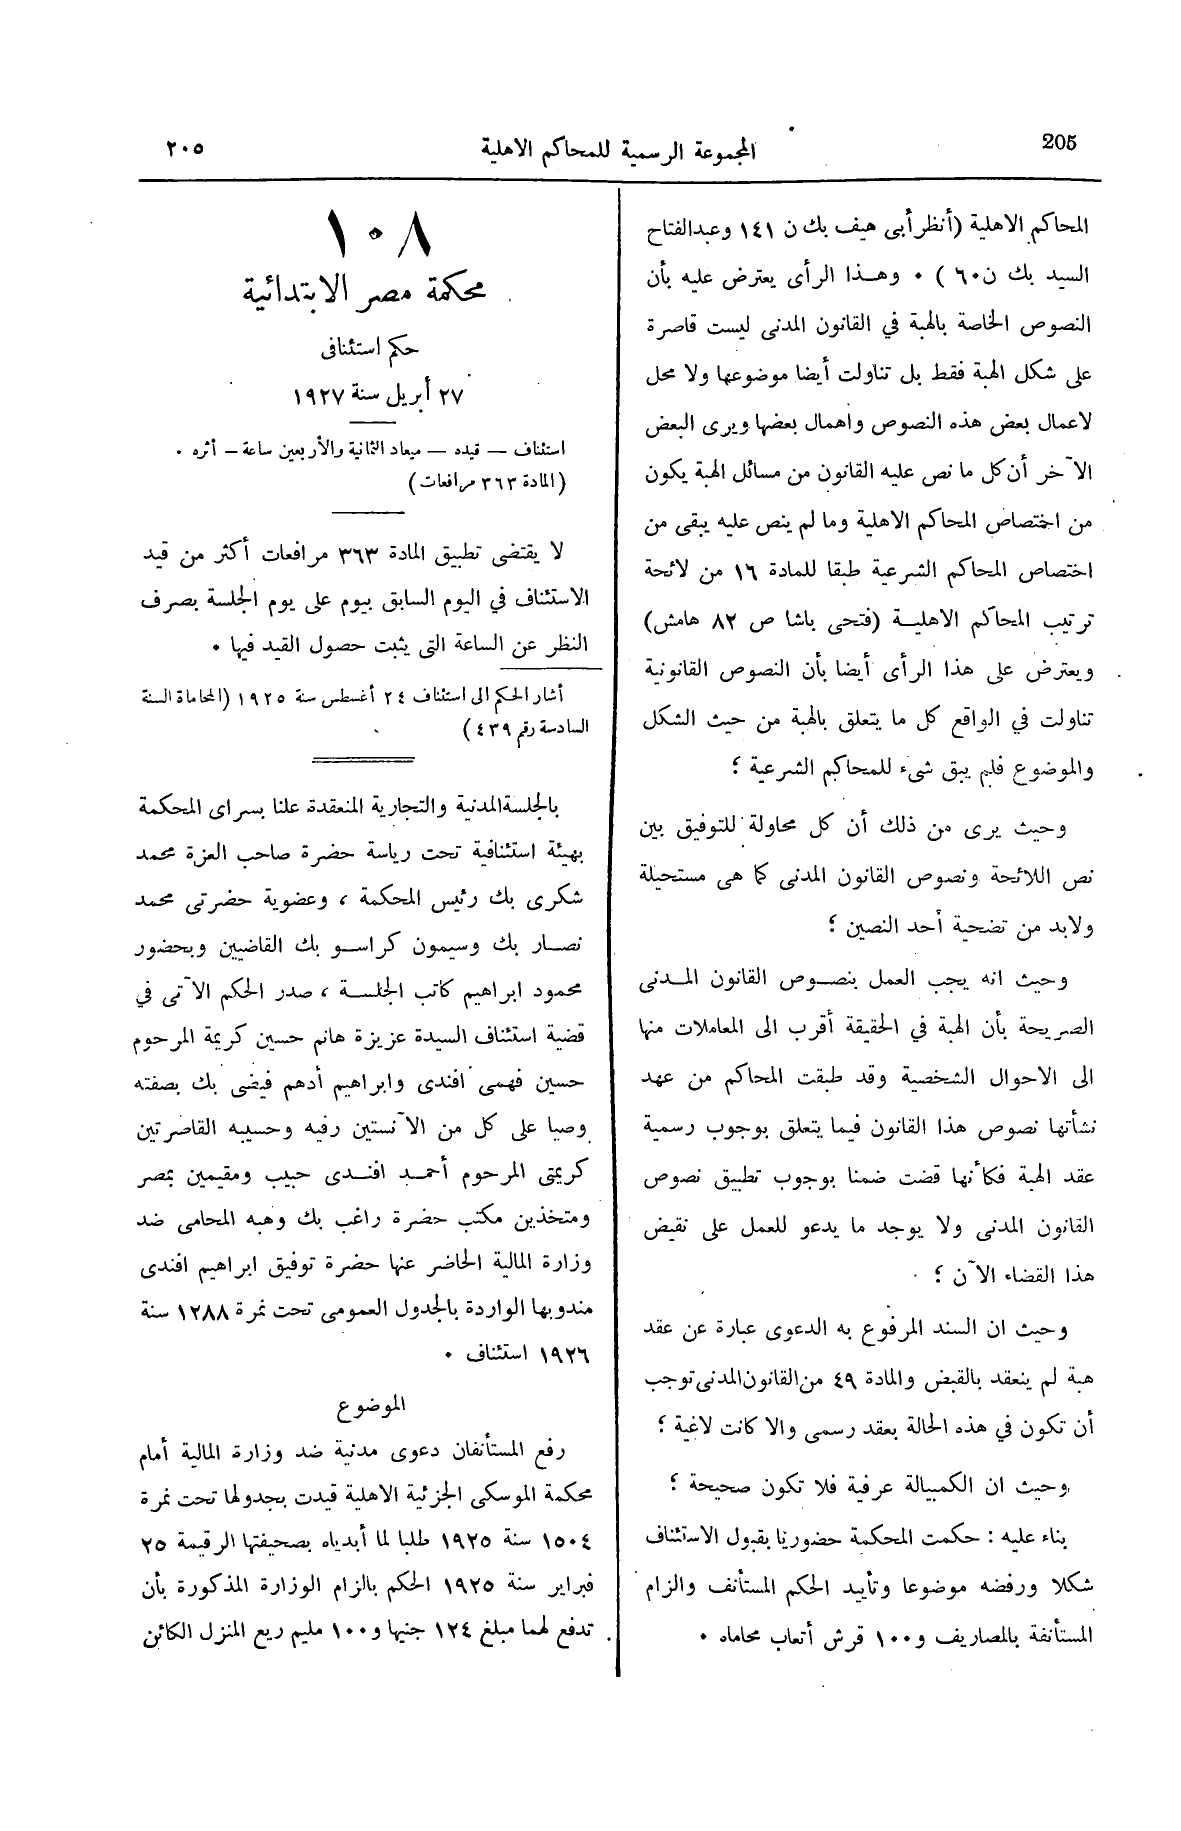 205
المجموعة الرسمية للمحاكم الاهلية
٢٠٥
المحاكم الاهلية (أنظر أبى هيف بك ن ١٤١ وعبدالفتاح
السيد بك ن ٦٠ ) ٠ وهــذا الرأى يعترض عليه بأن
النصوص الخاصة بالهبة في القانون المدنى ليست قاصرة
على شكل الهبة فقط بل تناولت أيضا موضوعها ولا محل
لاعمال بعض هذه النصوص واهمال بعضها ويرى البعض
الآخر أن كل ما نص عليه القانون من مسائل الهبة يكون
من اختصاص المحاكم الاهلية وما لم ينص عليه يبقى من
اختصاص المحاكم الشرعية طبقا للمادة ١٦ من لائحة
ترتيب المحاكم الاهليــة (فتحى باشا ص ٨٢ هامش)
ويعترض على هذا الرأى أيضا بأن النصوص القانونية
تناولت في الواقع كل ما يتعلق بالهبة من حيث الشكل
والموضوع فلم يبق شىء للمحاكم الشرعية ؛
وحيث يرى من ذلك أن كل محاولة للتوفيق بين
نص اللائحة ونصوص القانون المدنى كما هى مستحيلة
ولابد من تضحية أحد النصين ؛
وحيث انه يجب العمل بنصــوص القانون المــدنى
الصريحة بأن الهبة في الحقيقة أقرب الى المعاملات منها
الى الاحوال الشخصية وقد طبقت المحاكم من عهد
نشأتها نصوص هذا القانون فيما يتعلق بوجوب رسمية
عقد الهبة فكأنها قضت ضمنا بوجوب تطبيق نصوص
القانون المدنى ولا يوجد ما يدعو للعمل على نقيض
هذا القضاء الآن ؛
وحيث ان السند المرفوع به الدعوى عبارة عن عقد
هبة لم ينعقد بالقبض والمادة ٤٩ من القانون المدنى توجب
أن تكون في هذه الحالة بعقد رسمى والا كانت لاغية ؛
وحيث ان الكمبيالة عرفية فلا تكون صحيحة ؛
بناء عليه : حكمت المحكمة حضوريا بقبول الاستئناف
شكلا ورفضه موضوعا وتأييد الحكم المستأنف والزام
المستأنفة بالمصاريف و١٠٠ قرش أتعاب محاماه ٠
١٠٨
محكمة مصر الابتدائية
حكم استئنافى
٢٧ أبريل سنة ١٩٢٧
استئناف — قيده — ميعاد الثمانية والأربعين ساعة – أثره ٠
(المادة ٣٦٣ مرافعات)
لا يقتضى تطبيق المادة ٣٦٣ مرافعات أكثر من قيد
الاستئناف في اليوم السابق بيوم على يوم الجلسة بصرف
النظر عن الساعة التى يثبت حصول القيد فيها ٠
أشار الحكم الى استئناف ٢٤ أغسطس سنة ١٩٢٥ (المحاماة السنة
السادسة رقم ٤٣٩)
بالجلسة المدنية والتجارية المنعقدة علنا بسراى المحكمة
بهيئة استئنافية تحت رياسة حضرة صاحب العزة محمد
شكرى بك رئيس المحكمة ، وعضوية حضرتى محمد
نصــار بك وسيمون كراسـو بك القاضيين وبحضور
محمود ابراهيم كاتب الجلســة ، صدر الحكم الآتى في
قضية استئناف السيدة عزيزة هانم حسين كريمة المرحوم
حسين فهمى افندى وابراهيم أدهم فيضى بك بصفته
وصيا على كل من الآنستين رفيه وحسيبه القاصرتين
كريمتى المرحوم أحمــد افنــدى حبيب ومقيمين بمصر
ومتخذين مكتب حضرة راغب بك وهبه المحامى ضد
وزارة المالية الحاضر عنها حضرة توفيق ابراهيم افندى
مندوبها الواردة بالجدول العمومى تحت نمرة ١٢٨٨ سنة
١٩٢٦ استئناف ٠
الموضوع
رفع المستأنفان دعوى مدنية ضد وزارة المالية أمام
محكمة الموسكى الجزئية الاهلية قيدت بجدولها تحت نمرة
١٥٠٤ سنة ١٩٢٥ طلبا لما أبدياه بصحيفتها الرقيمة ٢٥
فبراير سنة ١٩٢٥ الحكم بالزام الوزارة المذكورة بأن
تدفع لهما مبلغ ١٢٤ جنيها و١٠٠ مليم ريع المنزل الكائن